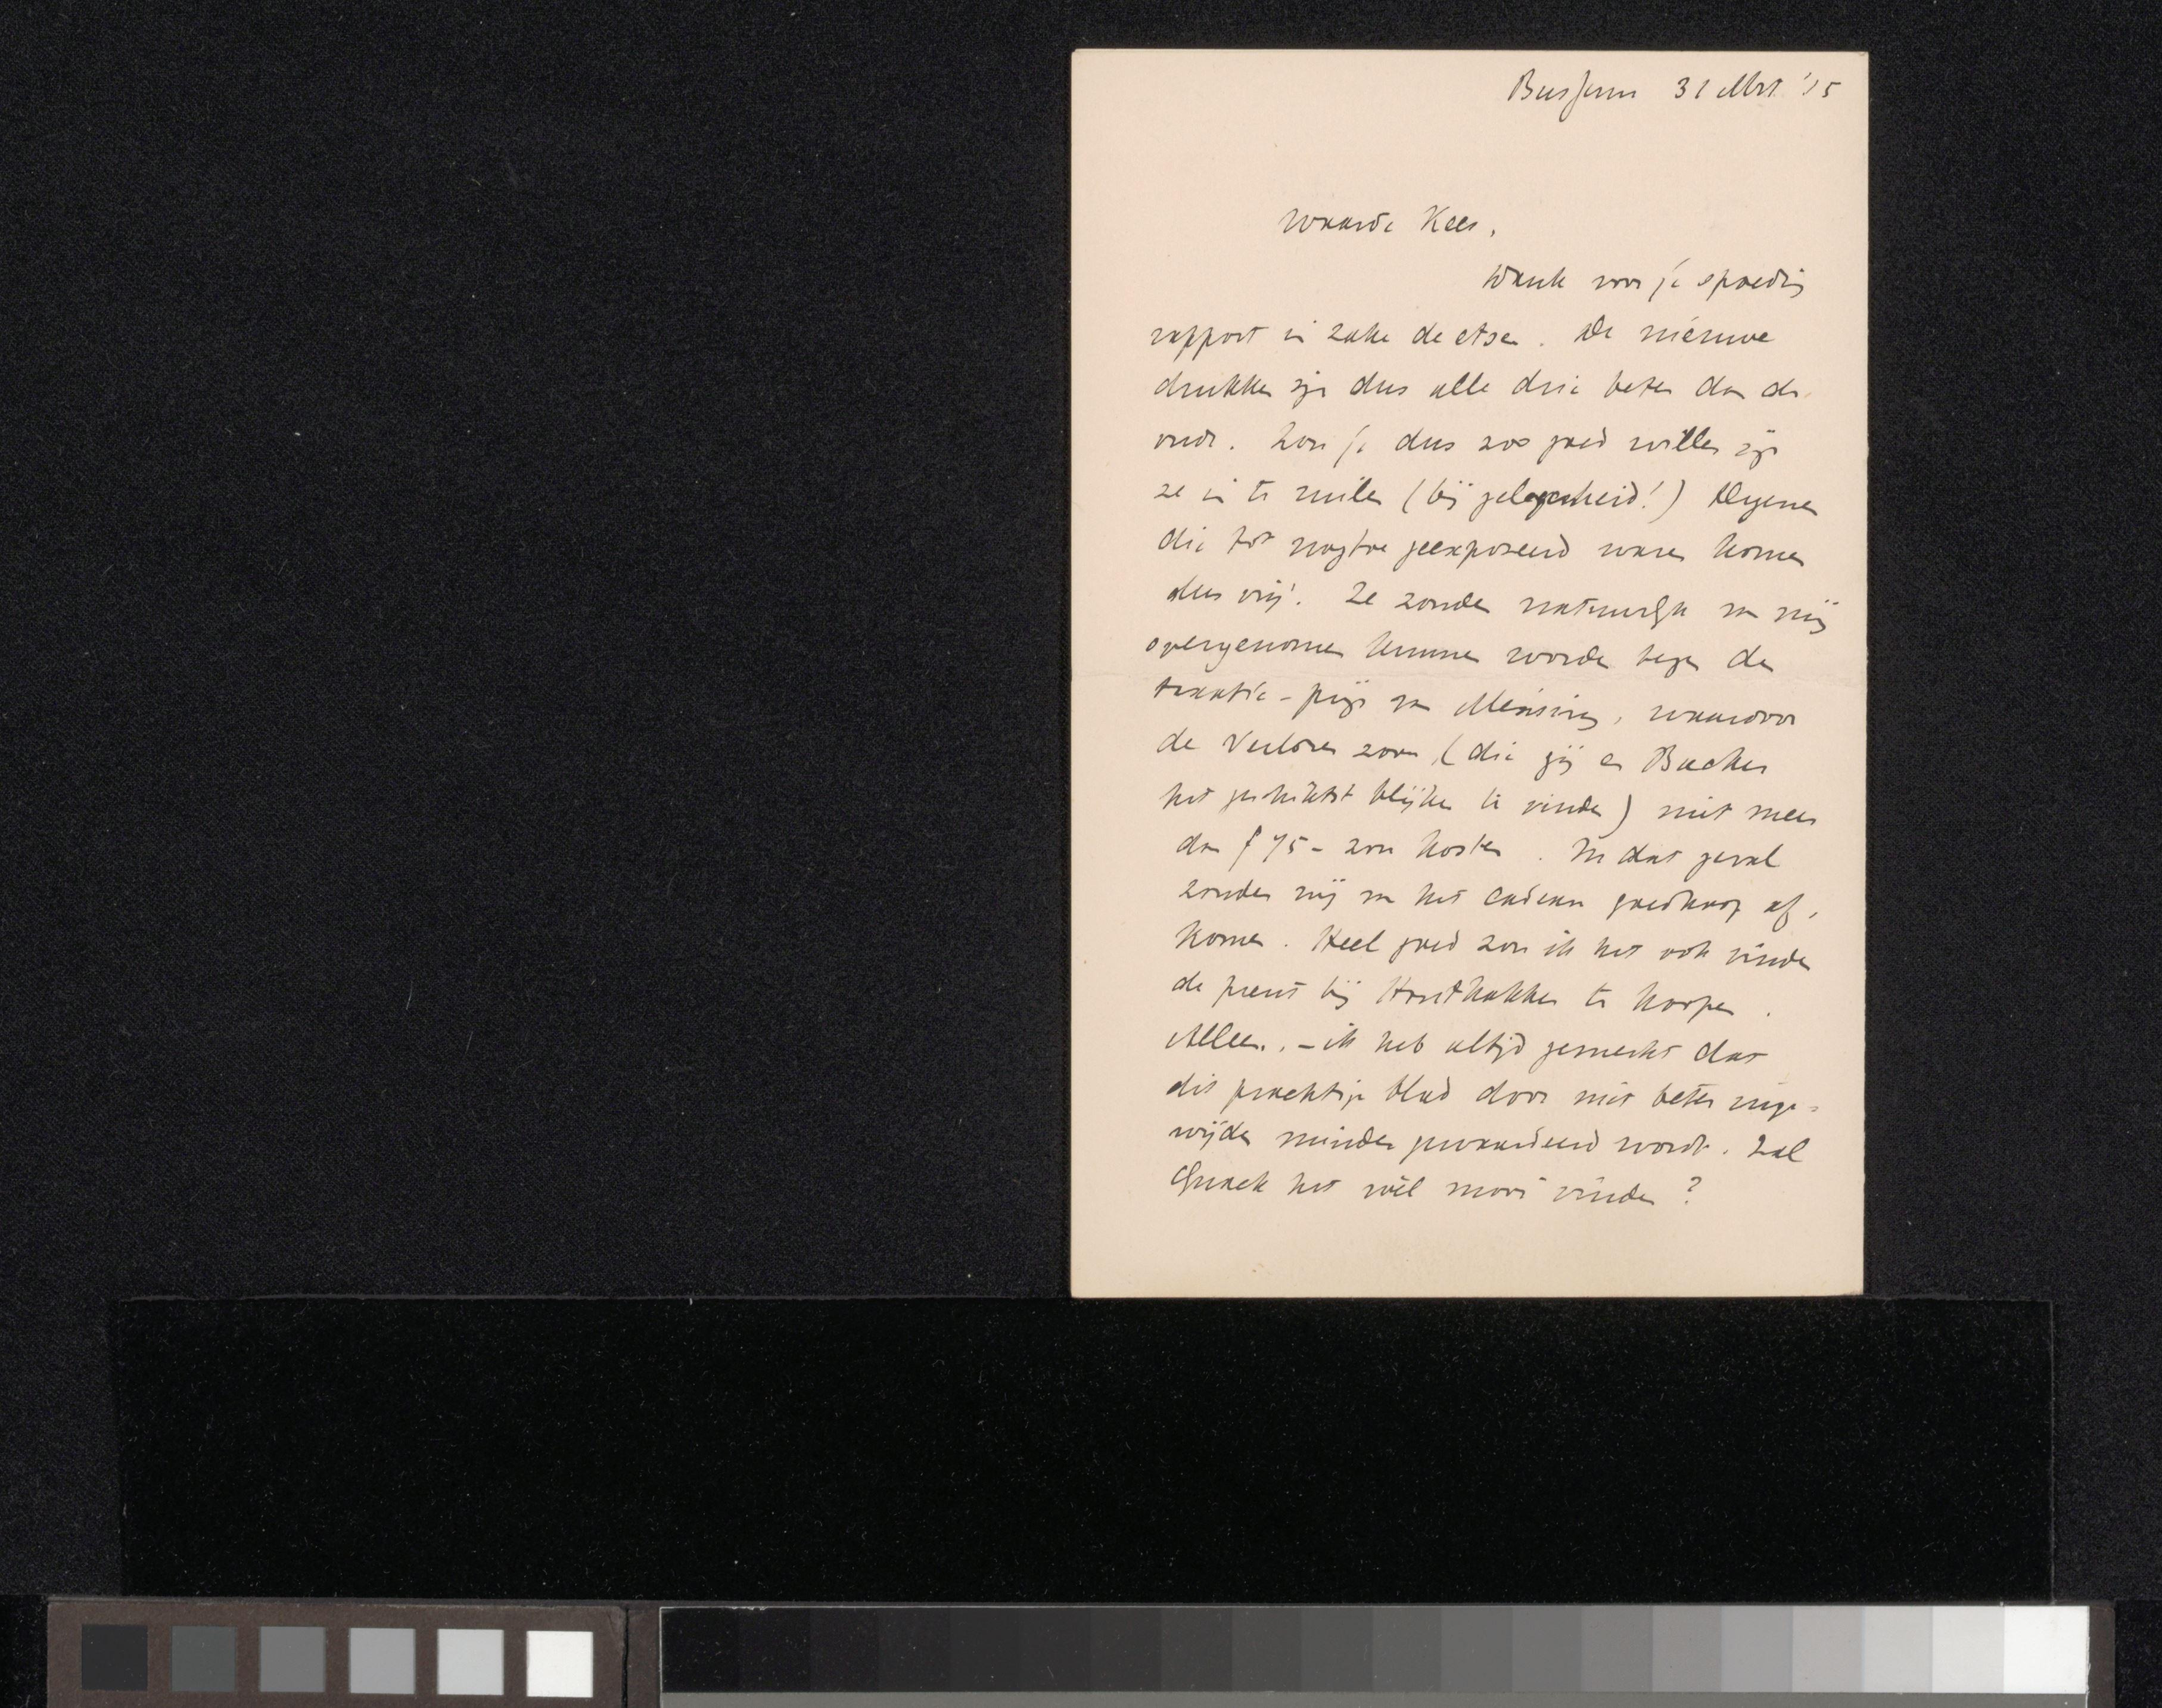 Bussum 31 Mrt '15
Waarde Kees,
Dank voor je spoedig
rapport in zake de etsen. De nieuwe
drukken zijn dus alle drie beter dan de
oude. Zou je dus zoo goed willen zijn
ze in te ruilen (bij gelegenheid!) Degenen
die tot nogtoe geexposeerd waren komen
dus vrij. Ze zouden natuurlijk van mij
overgenomen kunnen worden tegen de
taxatie-prijs van Mensing, waardoor
de Verloren zoon (die jij en Backer
het geschiktst blijken te vinden) niet meer
dan f 75- zou kosten. In dat geval
zouden wij van het cadeau goedkoop af,
komen. Heel goed zou ik het ook vinden
de prent bij Houthakker te koopen.
Alleen, - ik heb altijd gemerkt dat
dit prachtige blad door niet beter inge=
wijden minder gewaardeerd wordt. Zal
het wèl mooi vinden?